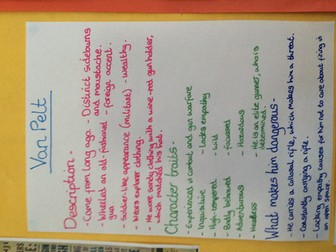 Van Pelt
Description -
- Came from long ago - District sideburns
and moustache.
- Wielded an old-fashioned - foreign accent.
gun
- Soldier-like appearance (militant) - Wealthy.
- Wears explorer clothing
- He wore sandy clothing with a wine-red gun holder,
which matched his hat.
Character traits -
- Experienced in combat and gun warfare
- Inquisitive - Lacks empathy
- High tempered - Wild
- Badly behaved - Focused
- Adventurous - Hazardous
- Heedless - He is an elite gunner, who is
determined.
What makes him dangerous -
- He carries a colonial rifle, which makes him a threat.
- Constantly carrying a rifle.
- Lacking empathy causes for him not to care about firing in
open space.